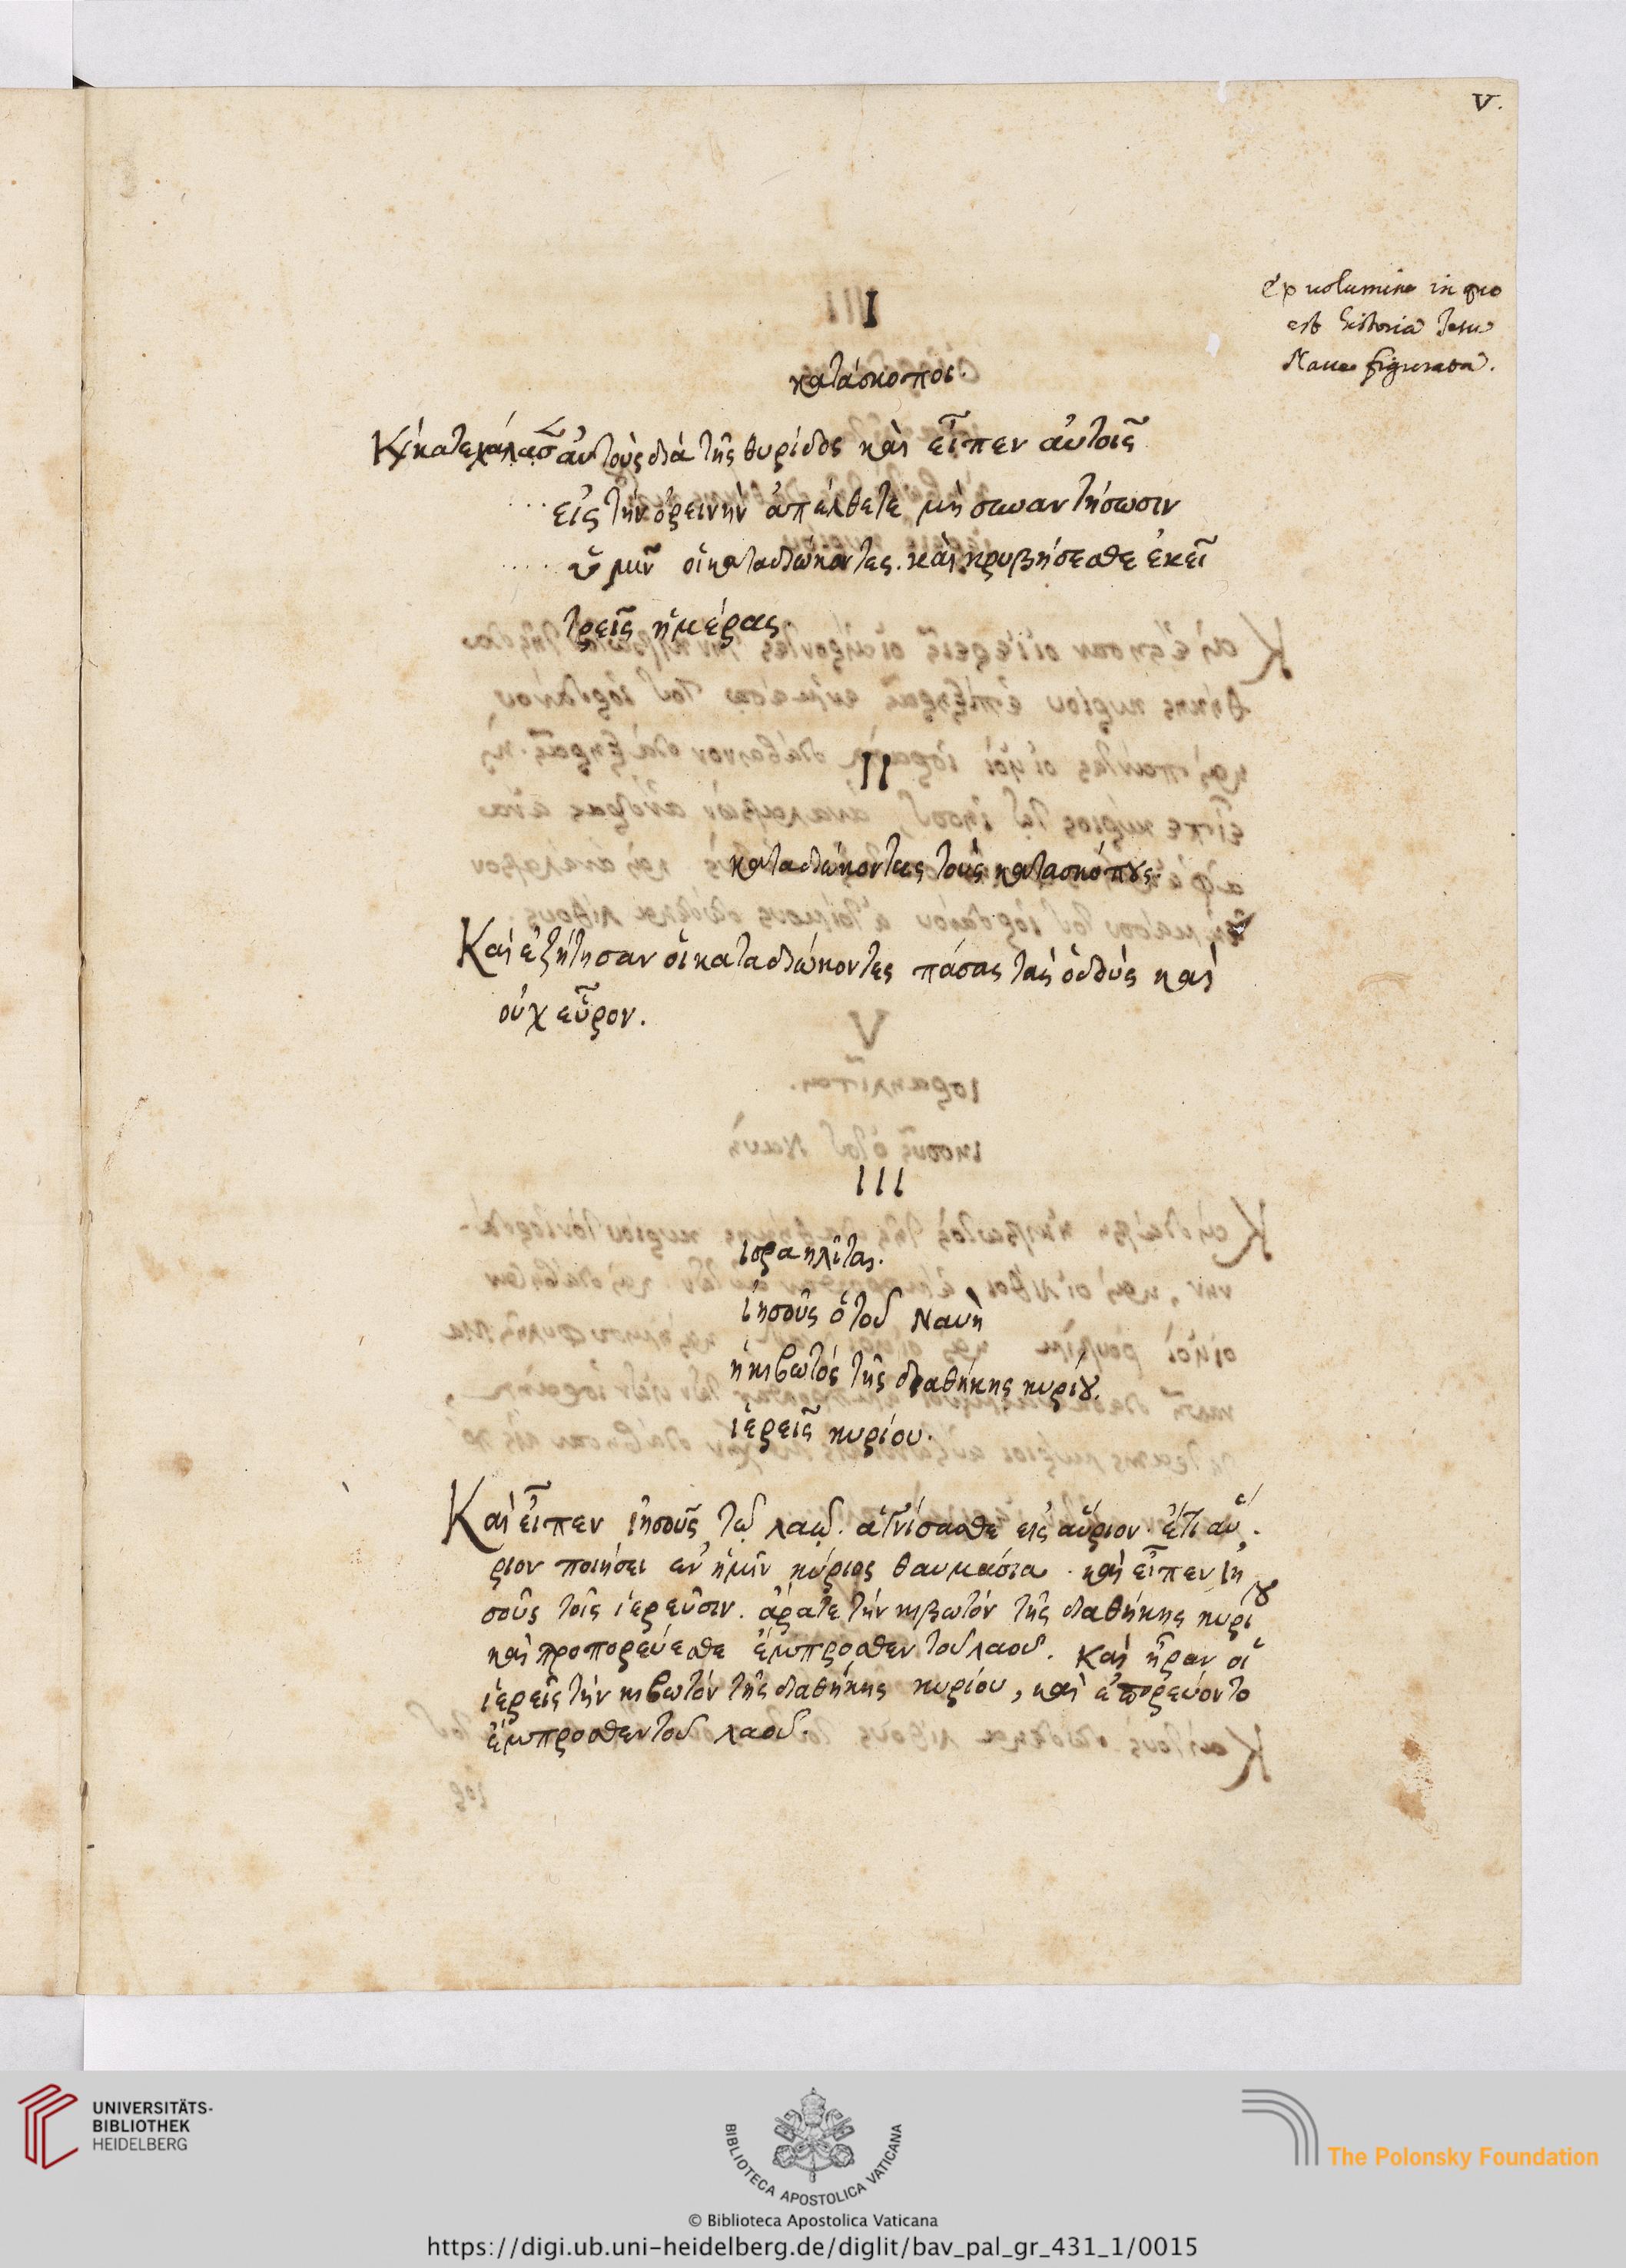 V.
Ex volumine in quo
est historia Jesu
Naue figurata.
I
κατάσκοποι.
Κὶ κατεχάλασ αὐτοὺς διὰ τῆς θυρίδος καὶ εἶπεν αὐτοῖς
... εἰς τὴν ὀρεινὴν ἀπέλθετε μὴ συναντήσωσιν
..... ὑμῖν οἱ καταδιώκοντες. καὶ κρυβήσεσθε ἐκεῖ
τρεῖς ἡμέρας.
II
καταδιώκοντες τοὺς κατασκόπους.
Καὶ ἐζήτησαν οἱ καταδιώκοντες πάσας τὰς ὁδοὺς καὶ
οὐχ εὗρον.
III
ισραηλῖται.
ἰησοῦς ὁ τοῦ Ναυὴ
ἡ κιβωτός τῆς διαθήκης κυρίου.
ἱερεῖς κυρίου.
Καὶ εἶπεν ἰησοῦς τῷ λαῷ. ἁγνίσασθε εἰς αὔριον. ὅτι αὔ.
ριον ποιήσει ἐν ἡμῖν κύριος θαυμάσια. καὶ εἶπεν ἰη
σοῦς τοῖς ἱερεῦσιν. ἄρατε τὴν κιβωτόν τῆς διαθήκης κυρίου
καὶ προπορεύεσθε ἔμπροσθεν τοῦ λαοῦ. Καὶ ἦραν οἱ
ἱερεῖς τὴν κιβωτόν τῆς διαθήκης κυρίου, καὶ ἐπορεύοντο
ἔμπροσθεν τοῦ λαοῦ.
UNIVERSITÄTS-
BIBLIOTHEK
HEIDELBERG
BIBLIOTECA APOSTOLICA VATICANA
The Polonsky Foundation
© Biblioteca Apostolica Vaticana
https://digi.ub.uni-heidelberg.de/diglit/bav_pal_gr_431_1/0015